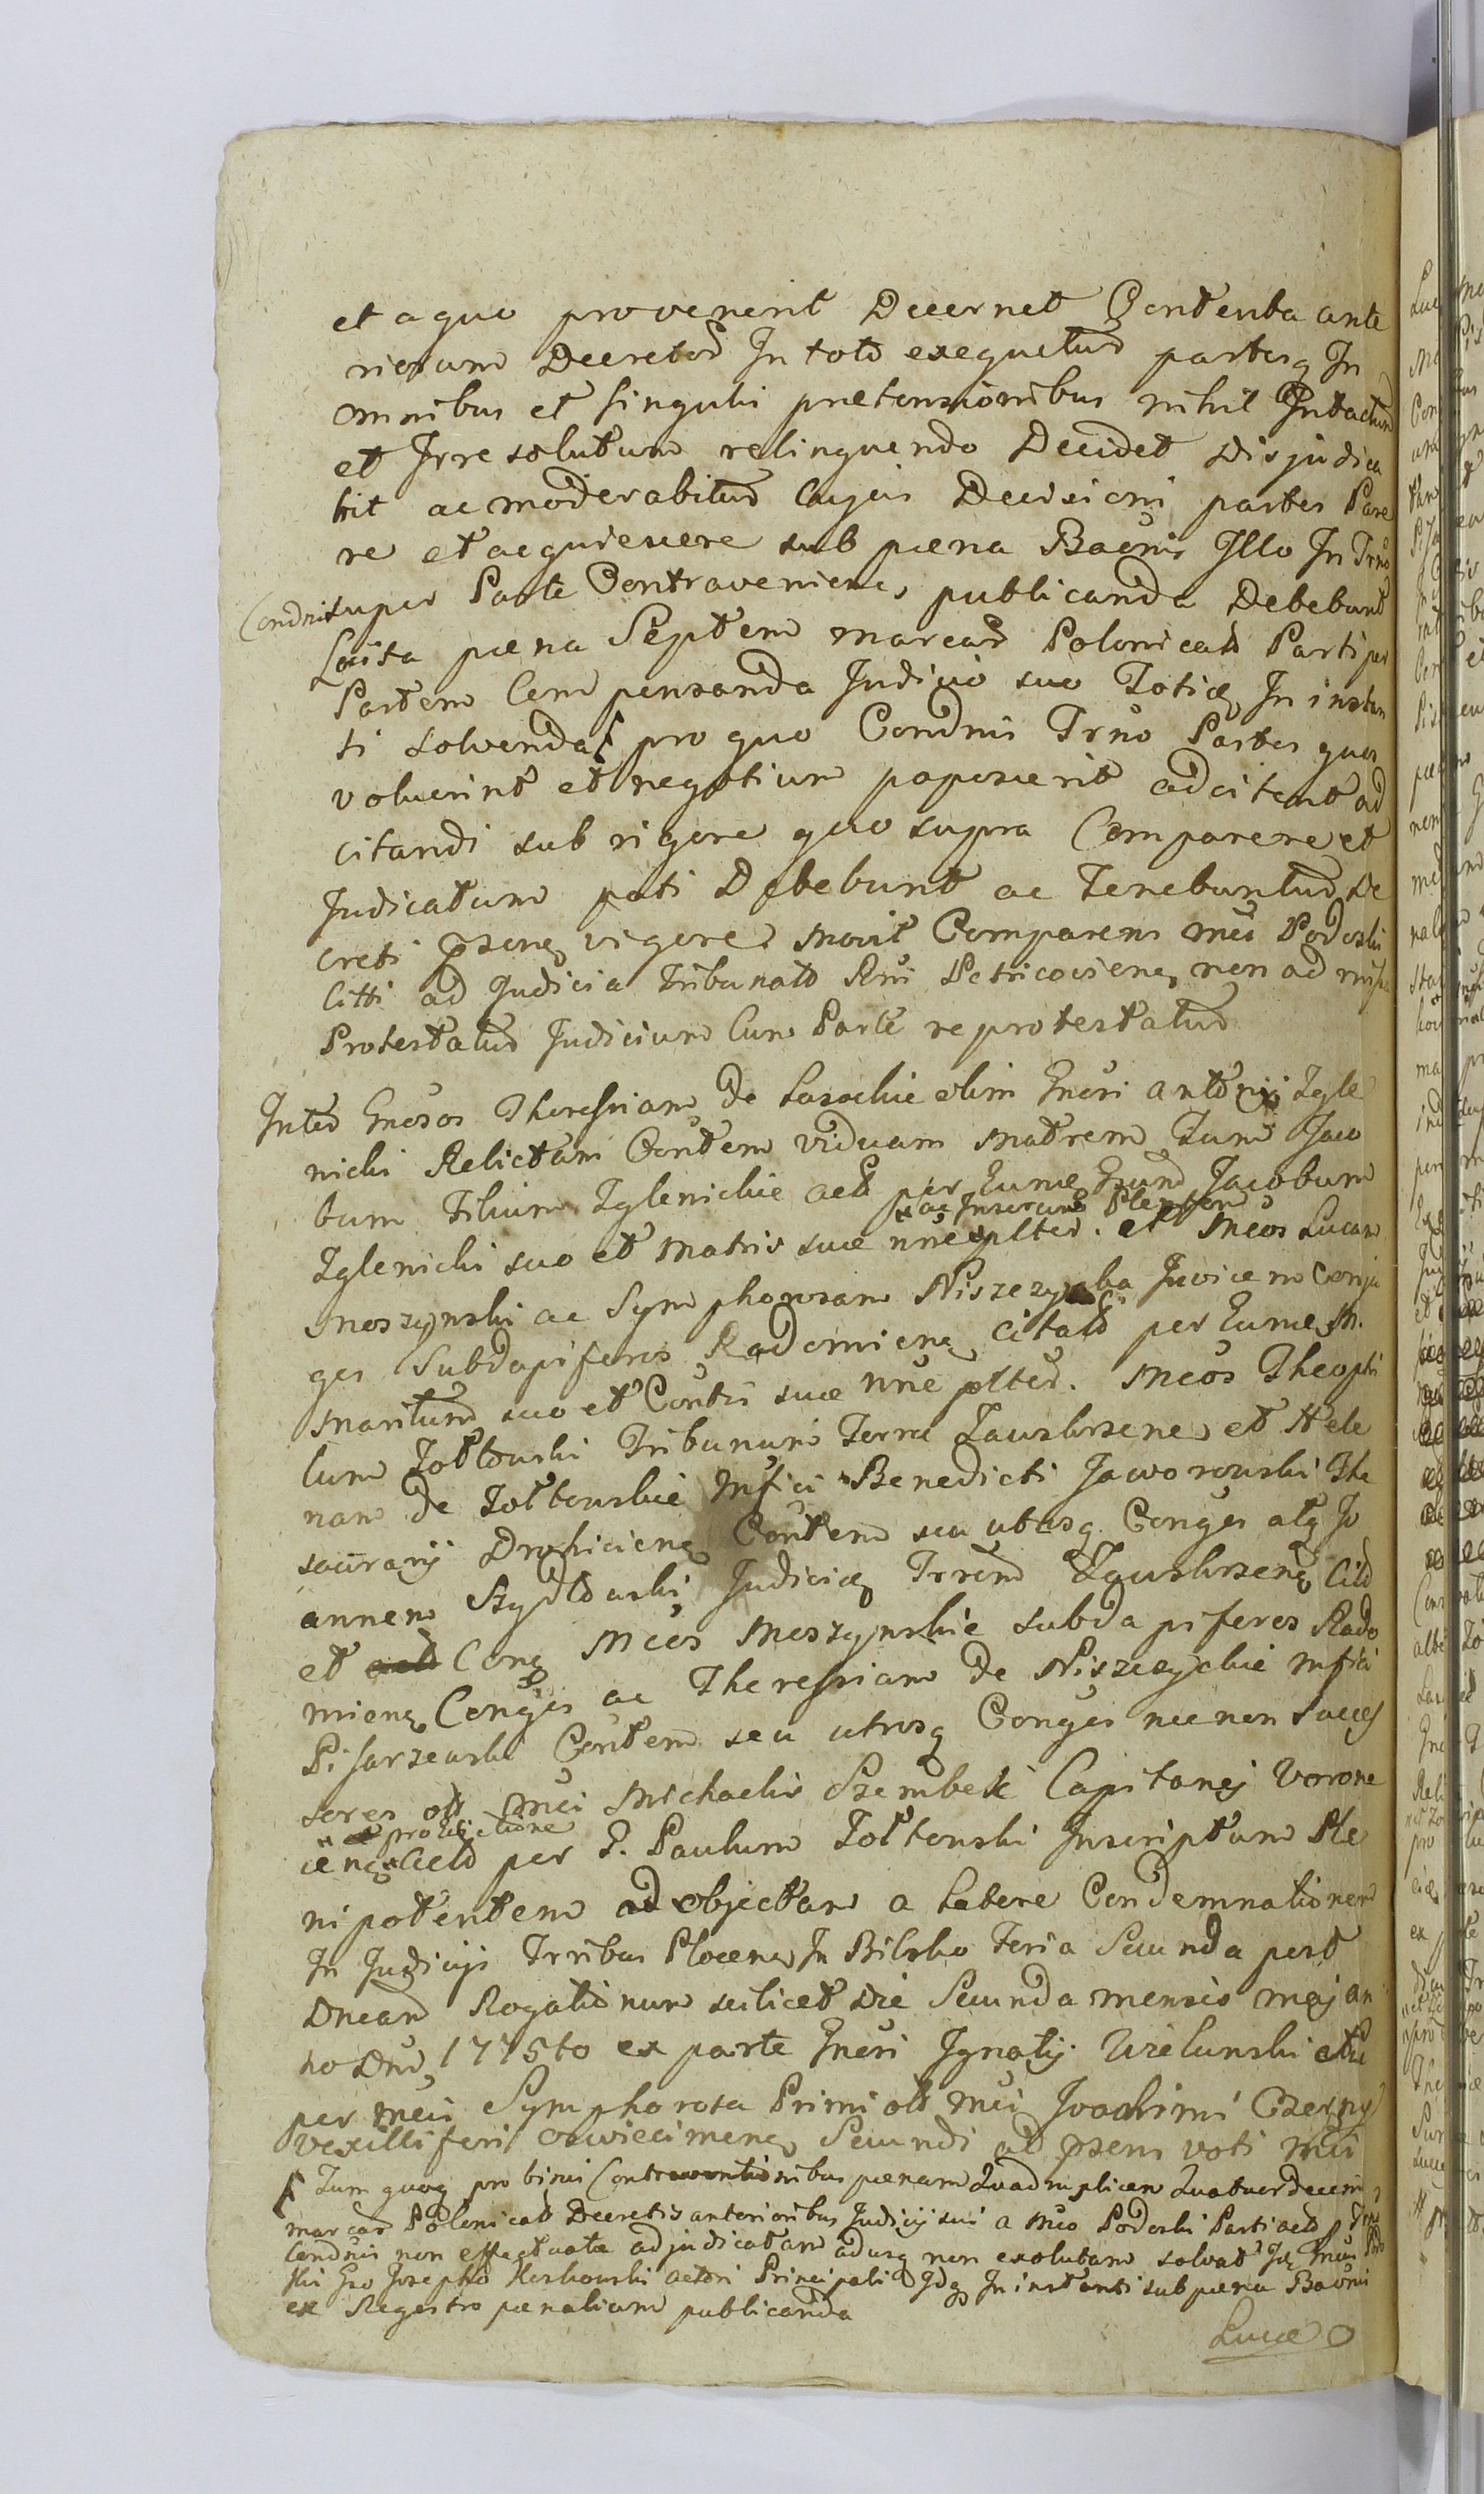 et a quo provenerit Decernet Contenta ante
riorum Decretor In toto exequetur partesq In
omnibus et singulis praetensionibus nihil Intactum
et Irresolutum relinquendo Decidet Disjudica
bit ac moderabitur Cujus Decisioni partes Pare
re et acquiescere sub paena Baõnis Illo In Trno
Condnis super Parte Contraveniene publicanda Debebunt
Lucita paena Septem marcar Polonicalt Parti per
Partem Compensanda Judicio suo Toties In instan
ti solvenda pro quo Condnis Trno Partes quos
voluerint et negotium poposcerit adcitent ad
citandi sub rigore quo supra Comparere et
Judicatum pati Debebunt ac Tenebuntur De
creti psens vigore. Movit Comparens Mci Podoski
Citti ad Judicia Tribunalt Rni Petricovienq non admissa
Protestatur Judicium Cum Parte reprotestatur
Inter Gnesos Theressiam de Lasockie olim Gnesi Antonij Zgle
nicki Relictam Contem viduam Matrem Tum Jaco
bum Filium Zglenickie act per Eumq Gsum Jacobum
" ac Inscrum Plenpem
Zglenicki suo et Matris suae nne pltes. et Mcos Lucam
Moszynski ac Symphorosam Niszczycka Invicem Conju
ges Subdapiferos Radomienq Citatt per Eumq M.
Maritum suo et Contis suae nne pltes. Mcos Theophi
lum Zołtowski Tribunum Terrae Zawskrzene et Hele
nam de Zołtowskie Mfici Benedicti Jaworowski The
saurarij Drohicienq Contem seu utosq Conges atq Jo
annem Szydłowski Judicia Trrem Zawskrzenq Citt
et Conq Mcos Moszynskie subdapiferos Rado
mienq Conges ac Theressiam de Niszczyckie Mfci
Pisarzewski Contem seu utrosq Conges nec non Succes
sores olt Mci Michaelis Szembek Capitanej Worone
" et pro Ejectione
cienq Citt per G. Paulum Zołtowski Inscriptum Ple
nipotentem ad objectam a Latere Condemnationem
In Judicijs Trribus Plocenq In Bilsko Feria Secunda post
Dncam Rogationum scilicet Die Secunda mensis Maj an
no Dni 1775to ex parte Gnesi Ignatij Wielunski ctu
per Mcis Symphorosa Primi olt Mci Joachimi Czerny
Vexilliferi oswiecimenq Secundi ad psens voti Mci
Tum quoq pro binis Contraventionibus paenam Quadruplicem Quatuordecim
marcar Polonicalt Decretis anterioribus Judicij sui a Mco Podoski Parti actt Trno
Condnis non effectuata adjudicatam adusq non exolutam solvat Idq Mcus Podo
ski Gso Josepho Karkowski actori Principali Idq In instanti sub paena Baõnis
ex Regestro paenalium publicanda
Lucae